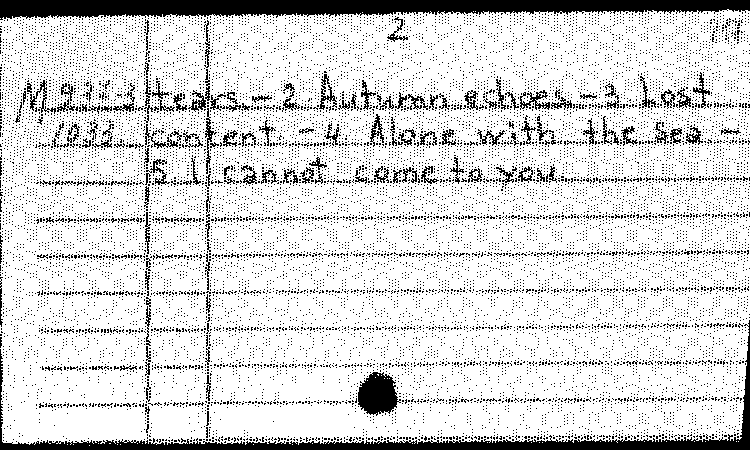 2
tears. - 2 Autumn echoes - 3 Lost
1033. content - 4 Alone with the sea -
5. I cannot come to you.